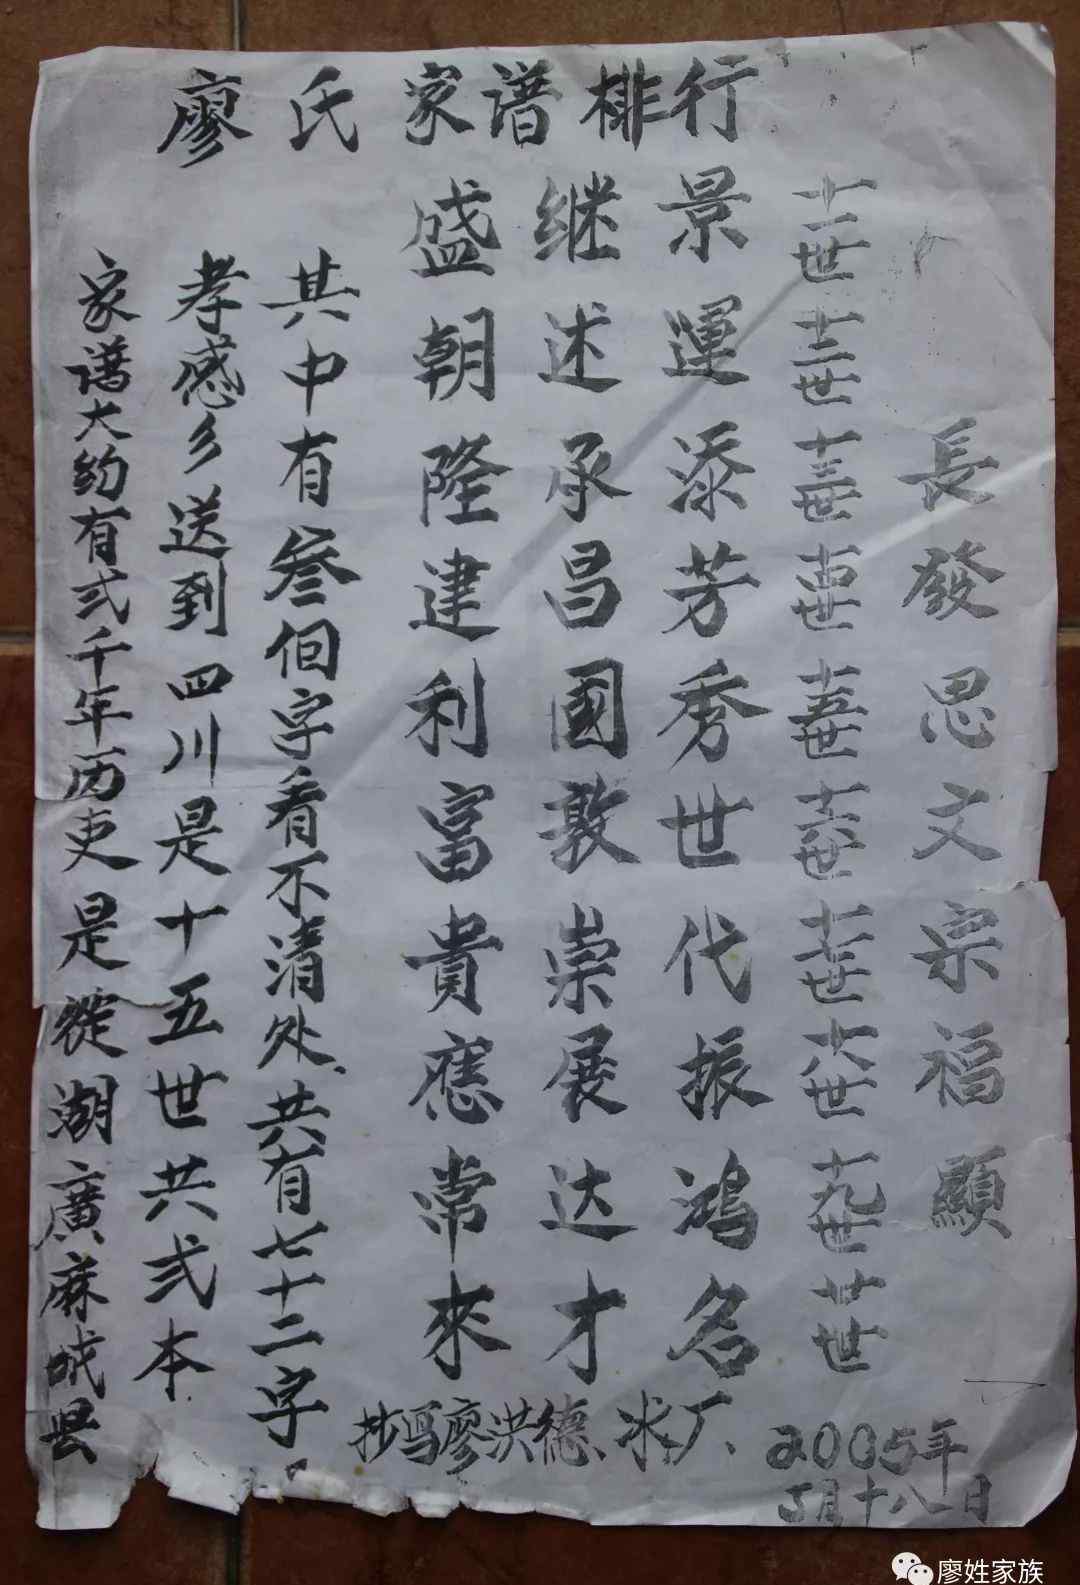 廖氏家谱排行
長發思文宗福顯
十一世 十二世 十三世 十四世 十五世 十六世 十七世 十八世 十九世 廿世
景運添芳秀世代振鸿名
继述承昌國敦崇展达才
盛朝隆建利富貴應常來
家谱大约有弍千年历史是從湖廣麻城县
孝感乡送到四川是十五世共弍本
其中有叁個字看不清处、共有七十二字。
抄写廖洪德、
2005年
5月十八日
廖姓家族